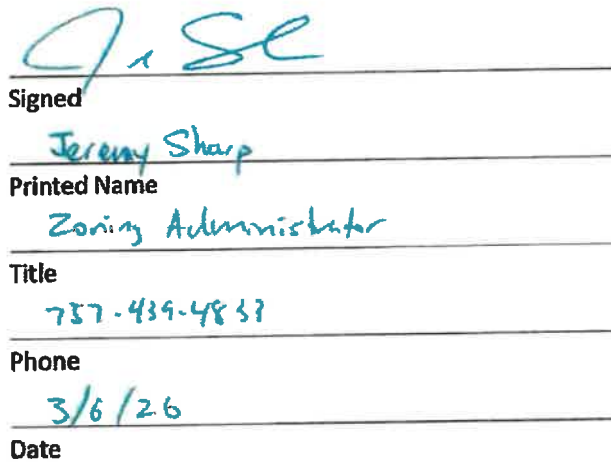 Signed
Jeremy Sharp
Printed Name
Zoning Administrator
Title
Phone
3/6/26
Date